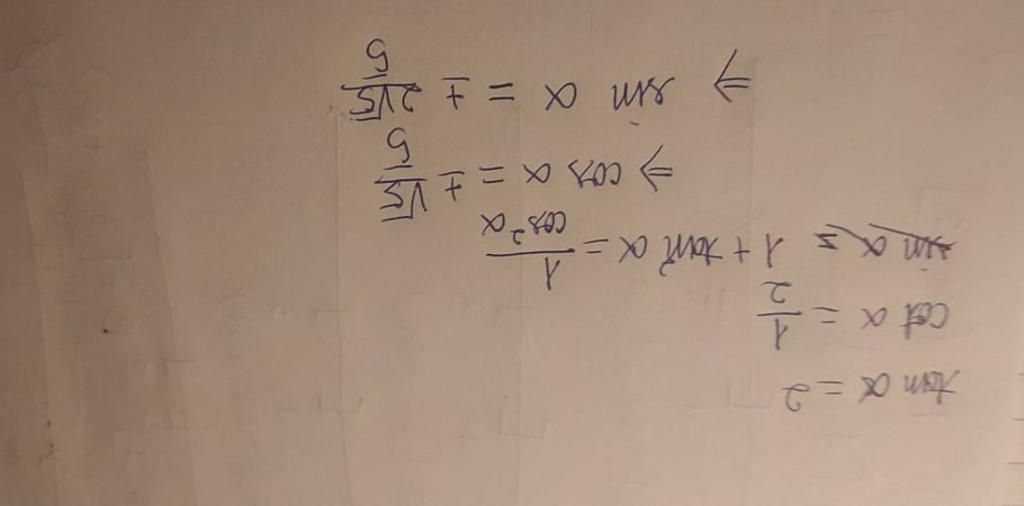 tan α = 2
cot α = 1/2
sin α = 1 + tan² α = 1/cos² α
⇒ cos α = ± √5/5
⇒ sin α = ± 2√5/5